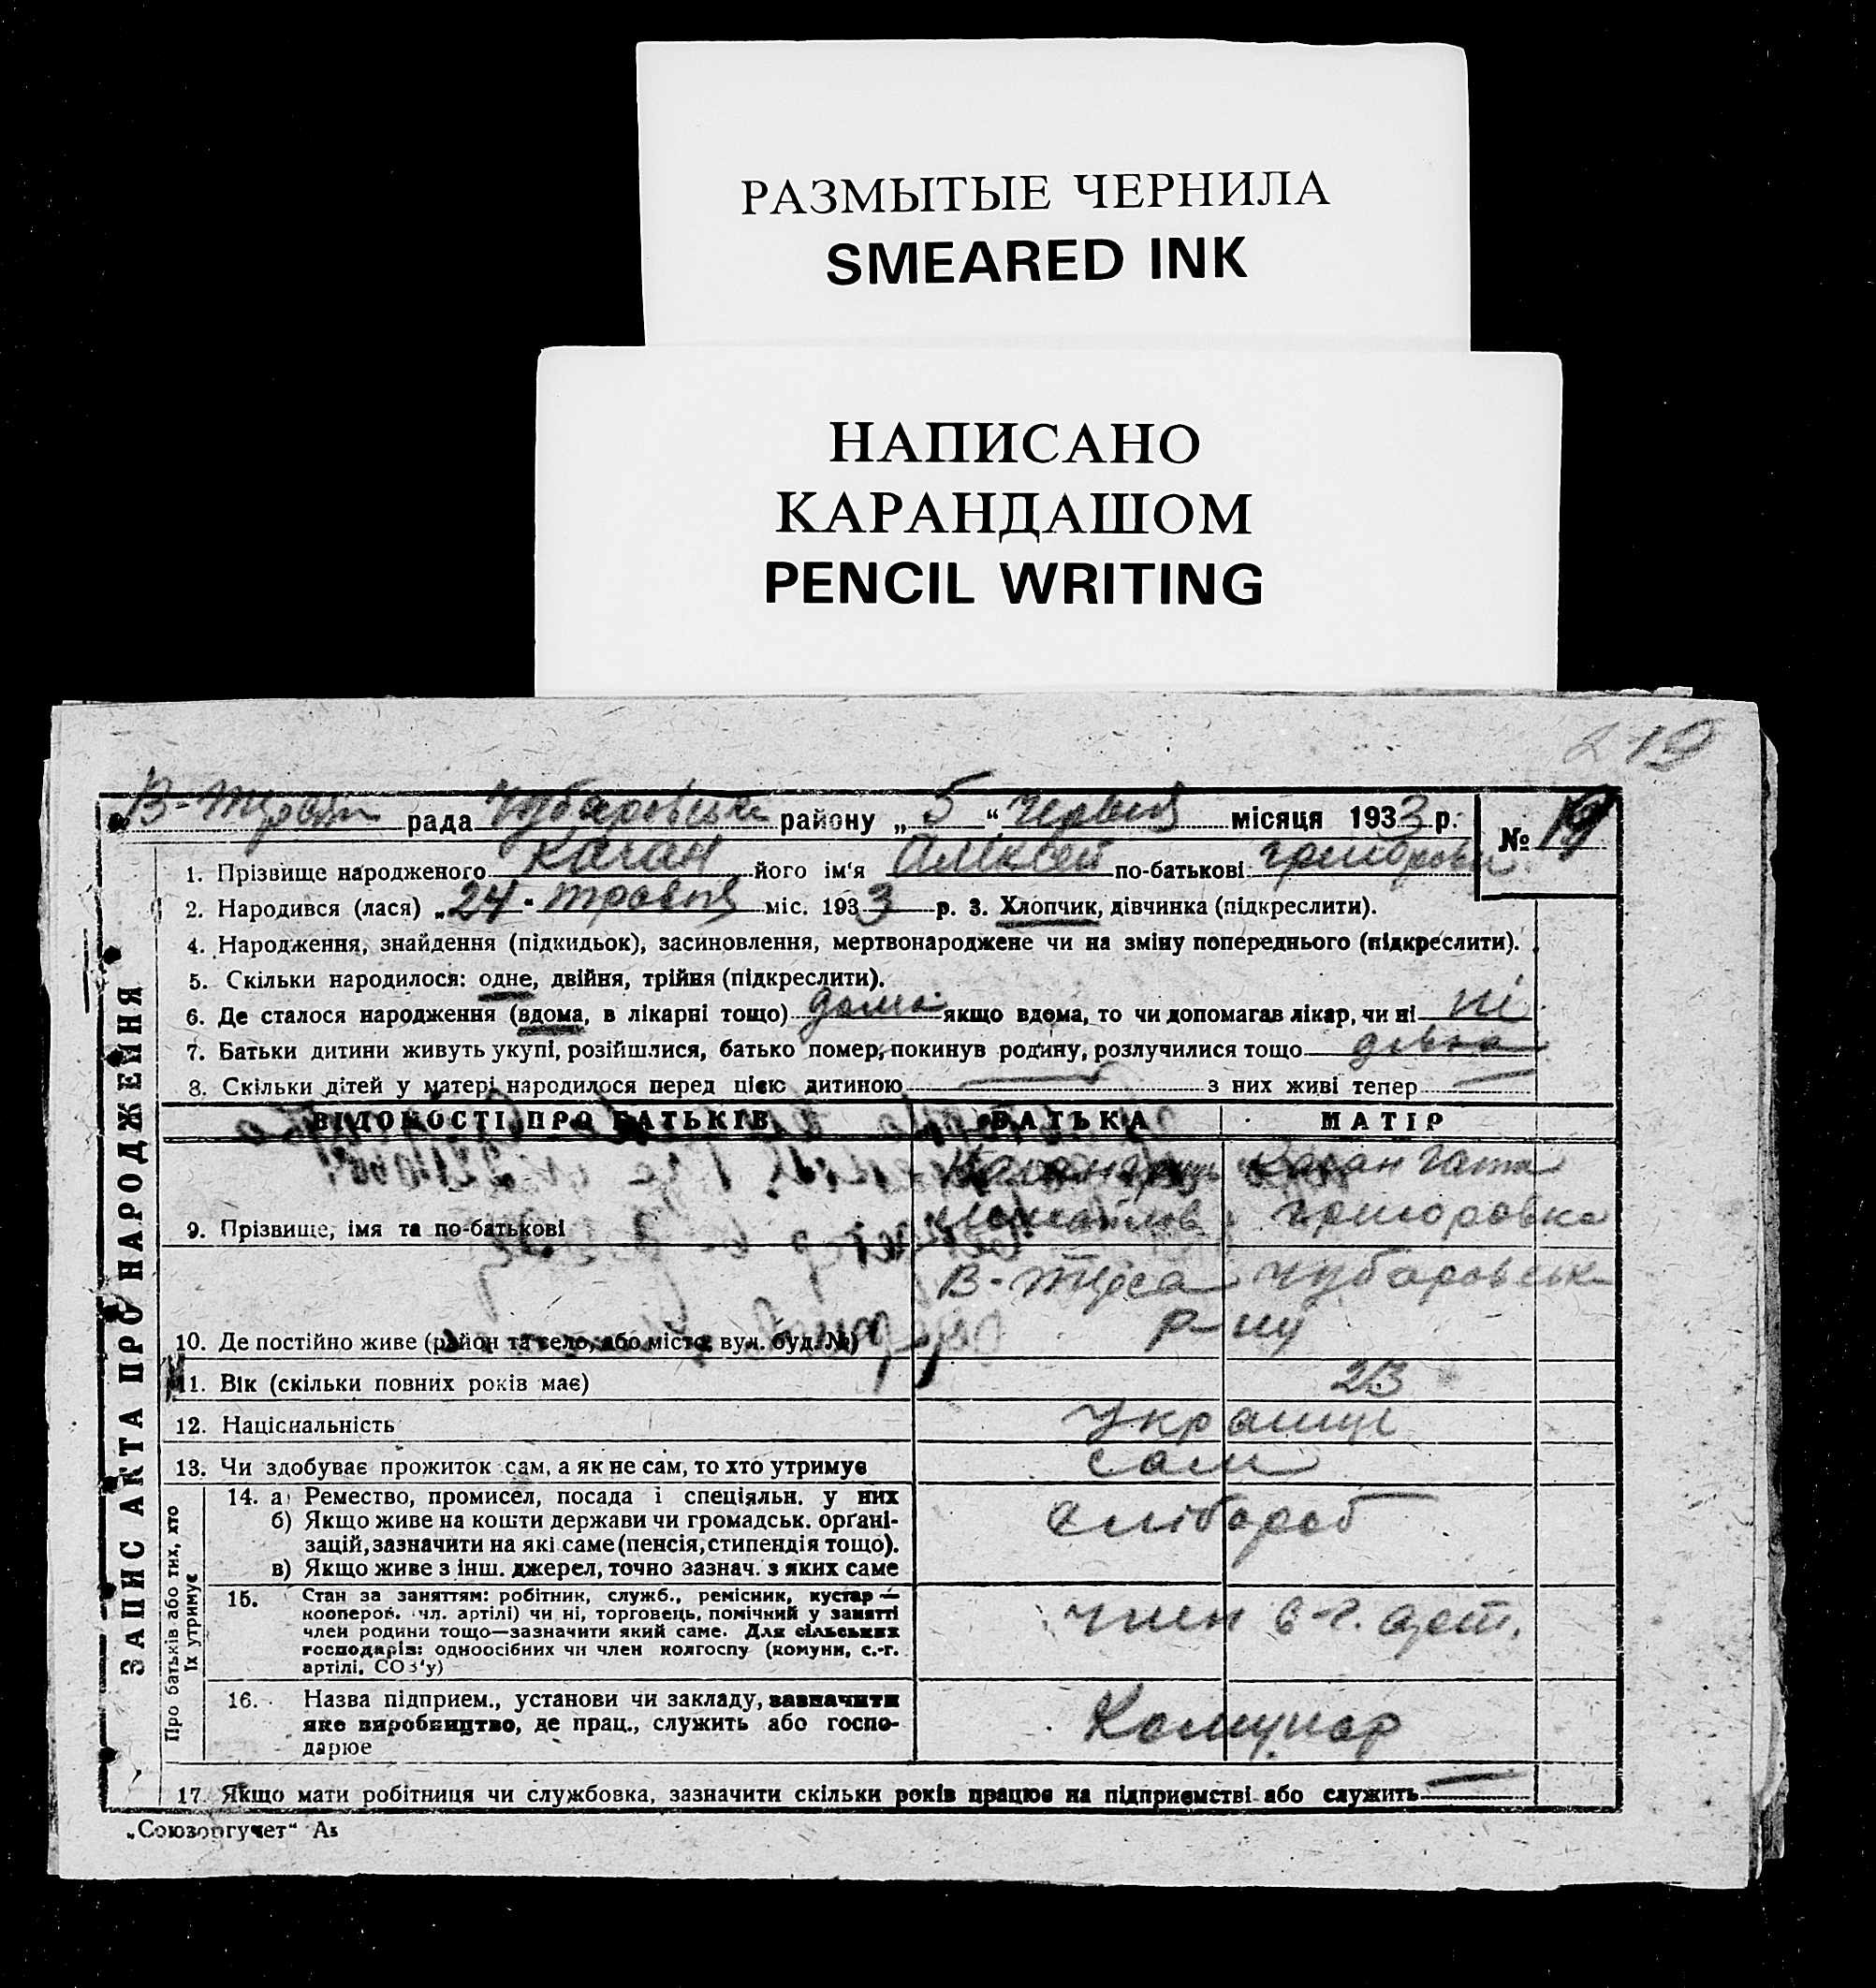 РАЗМЫТЫЕ ЧЕРНИЛА
SMEARED INK
НАПИСАНО
КАРАНДАШОМ
PENCIL WRITING
219
рада району „ 5 “ Червня місяця 1933 р. № 19
1. Прізвище народженого Каган його ім'я Аліксей по-батькові
2. Народився (лася) „ 24 “ травня міс. 1933 р. 3. Хлопчик, дівчинка (підкреслити).
4. Народження, знайдення (підкидьок), засиновлення, мертвонароджене чи на зміну попереднього (підкреслити).
5. Скільки народилося: одне, двійня, трійня (підкреслити).
6. Де сталося народження (вдома, в лікарні тощо) дома якщо вдома, то чи допомагав лікар, чи ні ні
7. Батьки дитини живуть укупі, розійшлися, батько помер, покинув родину, розлучилися тощо
8. Скільки дітей у матері народилося перед цією дитиною — з них живі тепер —
ЗАПИС АКТА ПРО НАРОДЖЕННЯ
ВІДОМОСТІ ПРО БАТЬКІВ БАТЬКА МАТІР
Каган
9. Прізвище, імя та по-батькові Григоровка
В-Турса Чубаровськ
10. Де постійно живе (район та село, або місто, вул. буд. №) р-ну
11. Вік (скільки повних років має) 23
12. Національність українці
13. Чи здобуває прожиток сам, а як не сам, то хто утримує сам
Про батьків або тих, хто їх утримує
14. а) Ремество, промисел, посада і спеціяльн. у них
б) Якщо живе на кошти держави чи громадськ. орґані-
зацій, зазначити на які саме (пенсія, стипендія тощо).
в) Якщо живе з інш. джерел, точно зазнач. з яких саме
хлібороб
15. Стан за заняттям: робітник, служб., ремісник, кустар —
кооперов. чл. артілі) чи ні, торговець, помічний у занятті
член родини тощо—зазначити який саме. Для сільських
господарів: одноосібних чи член колгоспу (комуни, с.-г.
артілі, СОЗ'у)
член
16. Назва підприєм., установи чи закладу, зазначити
яке виробництво, де прац., служить або госпо-
дарює
Комунар
17. Якщо мати робітниця чи службовка, зазначити скільки років працює на підприємстві або служить —
„Союзоргучет“ А5